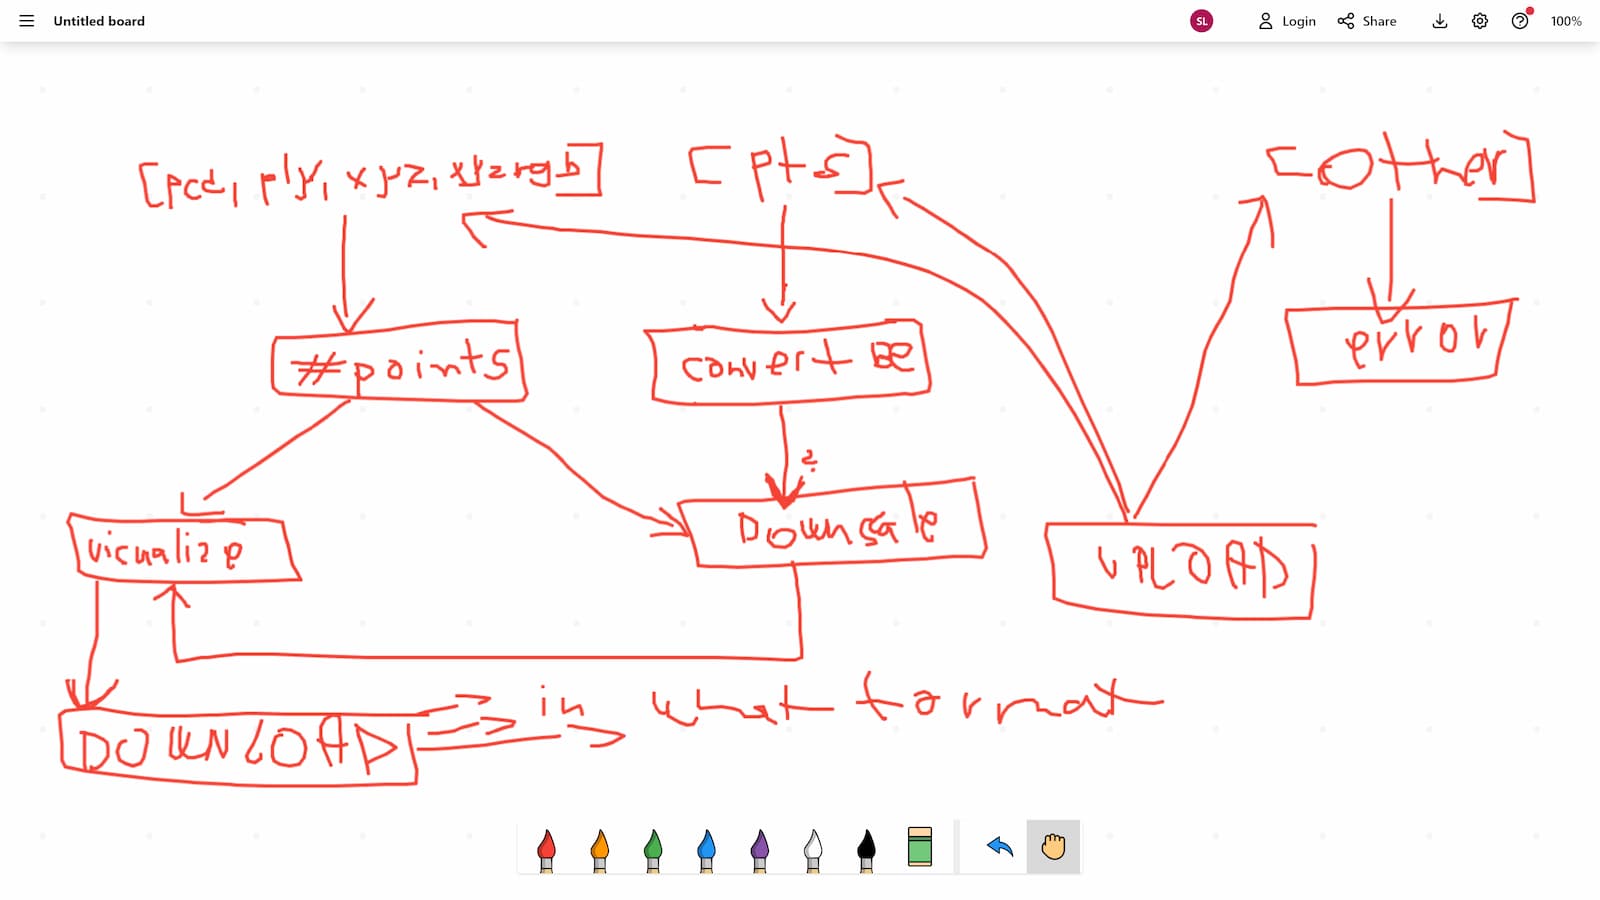 Untitled board
SL Login Share 100%
[pcd, ply, xyz, xyzrgb] [pts] [Other]
#points convert BE error
?
visualize Downsale UPLOAD
DOWNLOAD in what format